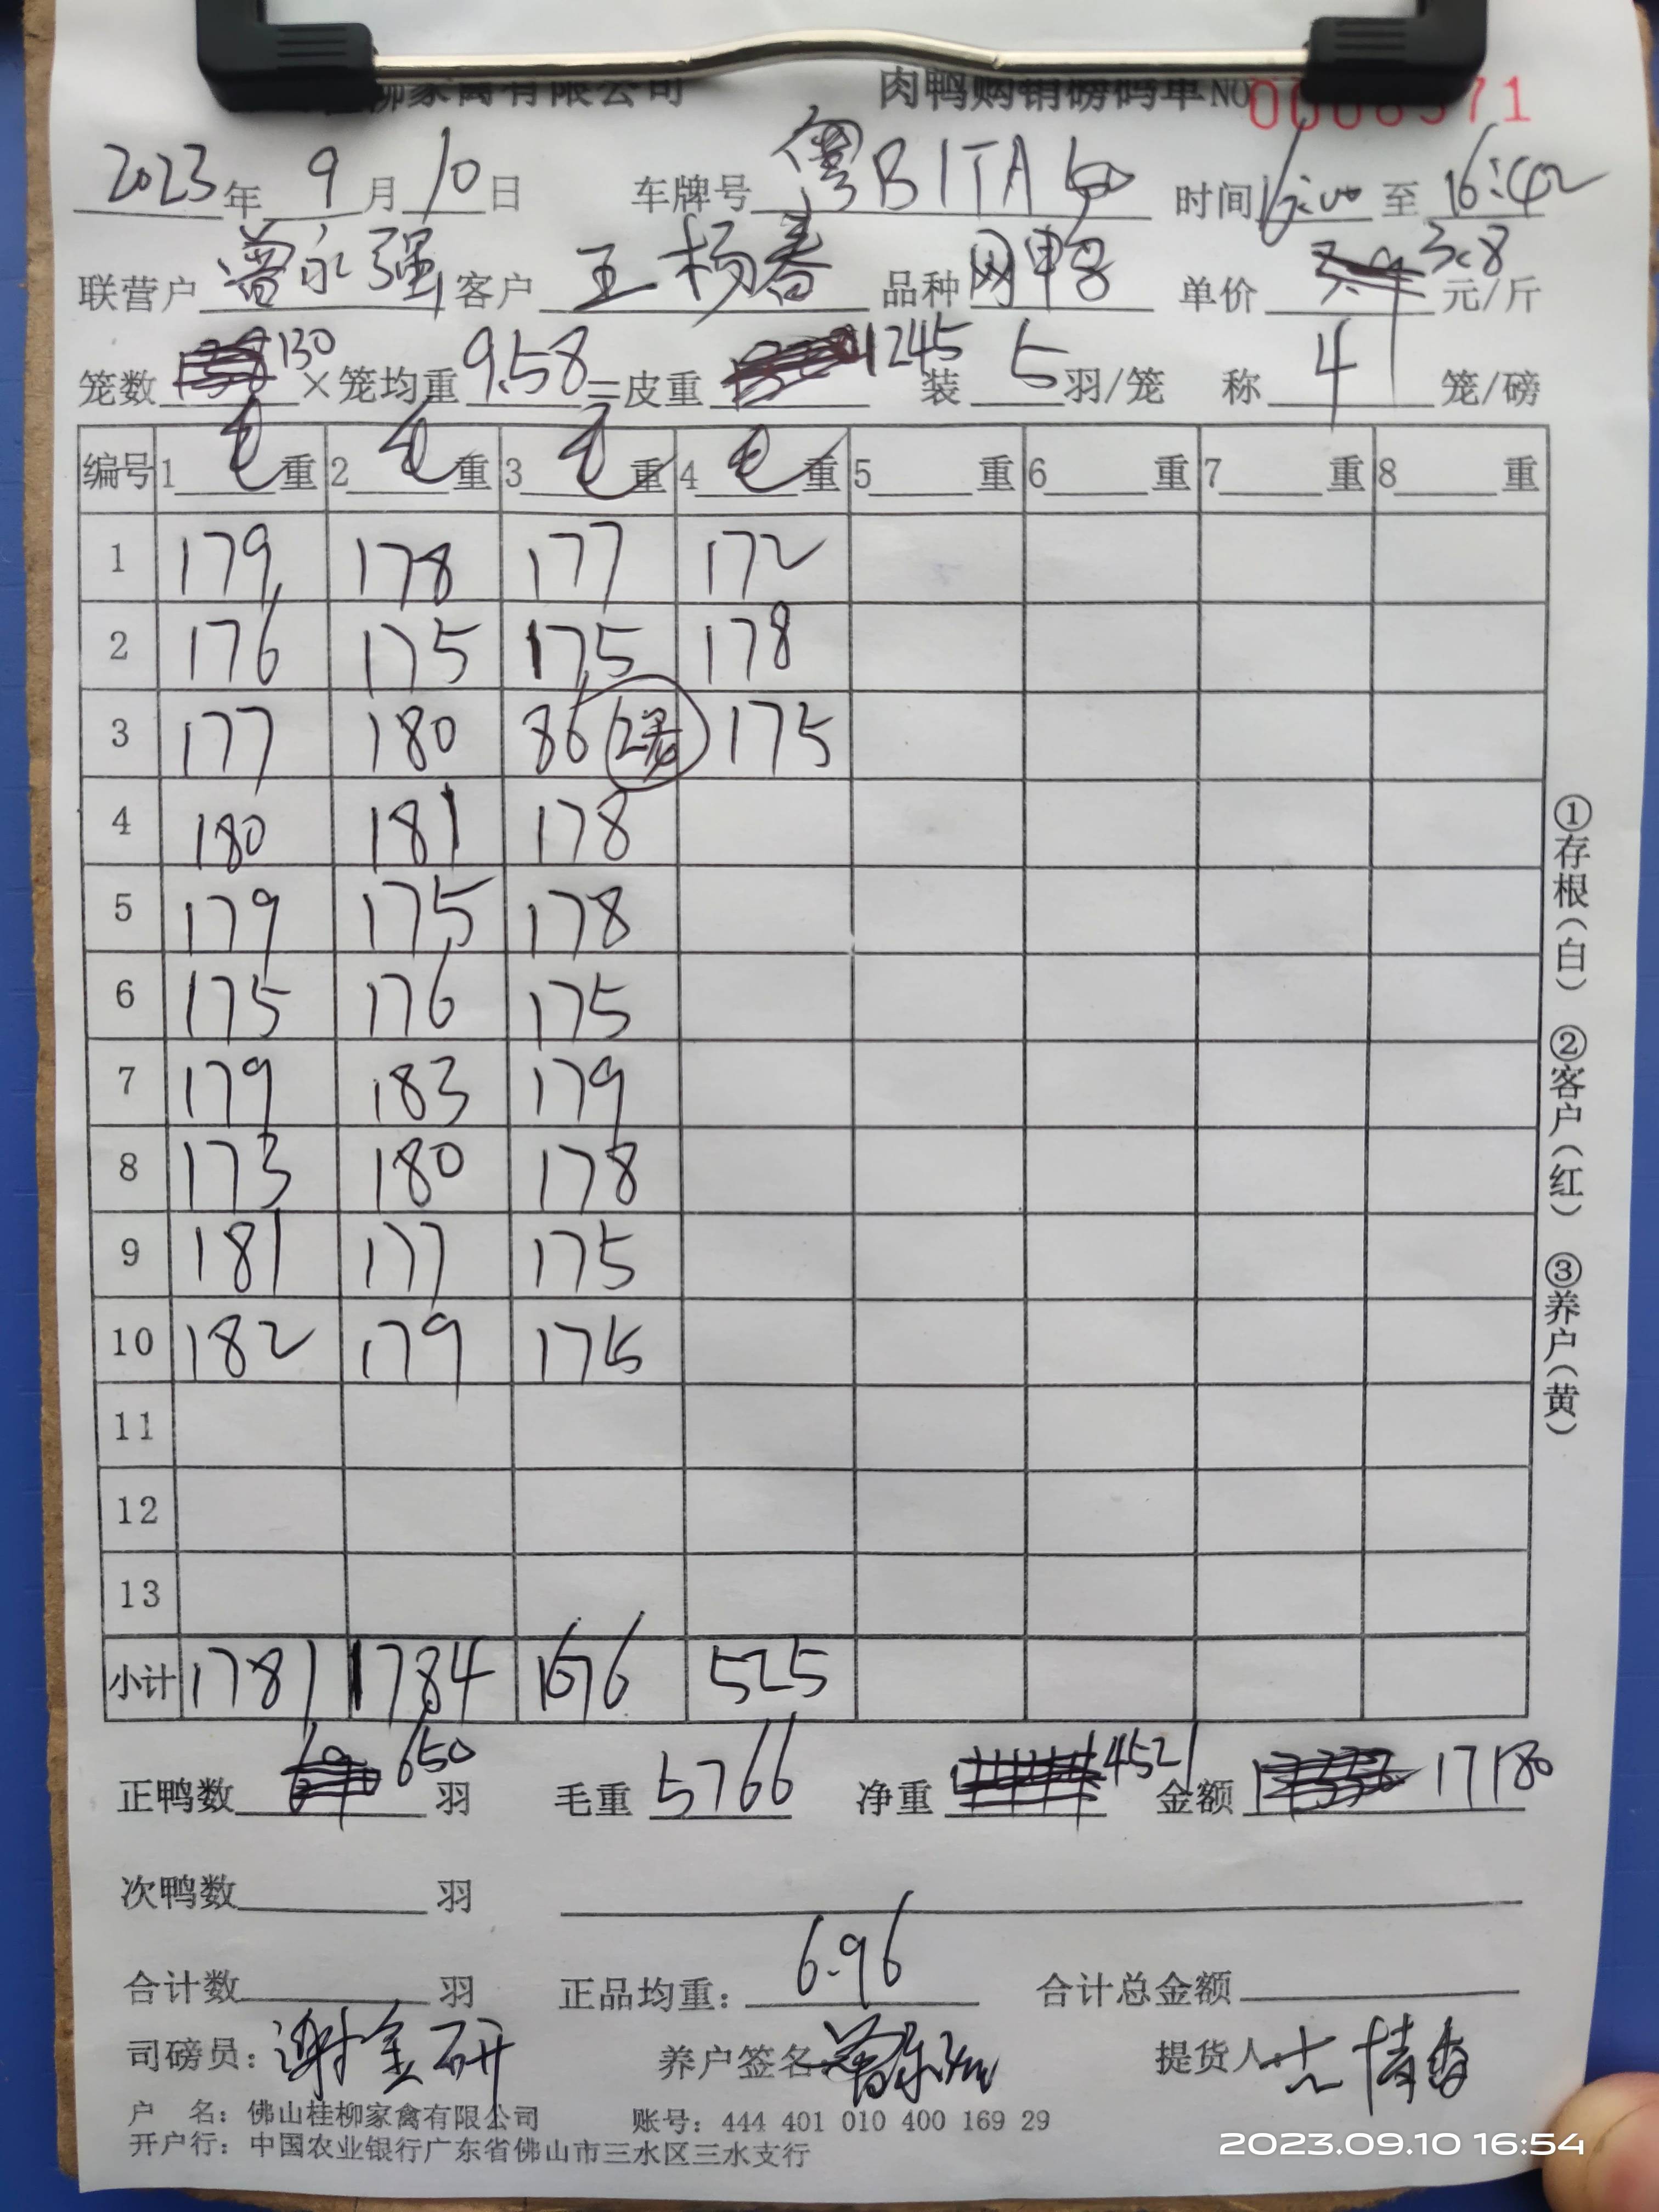 柳家禽有限公司 肉鸭购销磅码单 NO
2023年 9月 10日 车牌号 粤B1TA 时间 16:00 至 16:42
联营户 曾永强 客户 王杨春 品种 网鸭 单价 3.8 元/斤
笼数 130 ×笼均重 9.58 =皮重 1245 装 5 羽/笼 称 4 笼/磅
编号 1 毛 重 2 毛 重 3 毛 重 4 毛 重 5 重 6 重 7 重 8 重
1 179 178 177 172
2 176 175 175 178
3 177 180 86 175
4 180 181 178
5 179 175 178
6 175 176 175
7 179 183 179
8 173 180 178
9 181 177 175
10 182 179 175
11
12
13
小计 1781 1784 1676 525
正鸭数 650 羽 毛重 5766 净重 4521 金额 17180
次鸭数 羽
合计数 羽 正品均重: 6.96 合计总金额
司磅员: 谢金研 养户签名 提货人:
户 名: 佛山桂柳家禽有限公司 账号: 444 401 010 400 169 29
开户行: 中国农业银行广东省佛山市三水区三水支行
①存根(白) ②客户(红) ③养户(黄)
2023.09.10 16:54